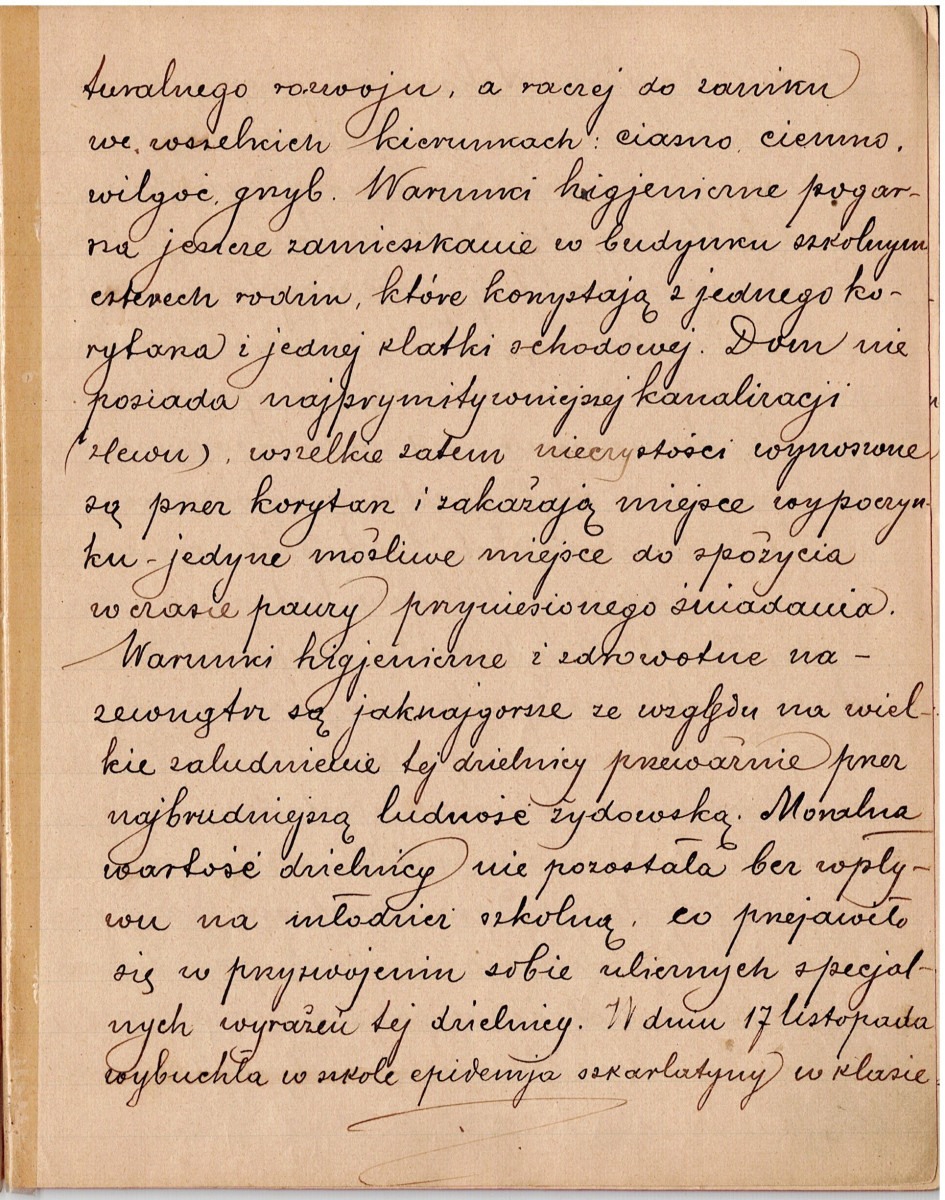 turalnego rozwoju, a raczej do zaniku
we wszelkich kierunkach: ciasno, ciemno,
wilgoć, grzyb. Warunki higjeniczne pogar-
sza jeszcze zamieszkanie w budynku szkolnym
czterech rodzin, które korzystają z jednego ko-
rytarza i jednej klatki schodowej. Dom nie
posiada najprymitywniejszej kanalizacji
(zlewu), wszelkie zatem nieczystości wynoszone
są przez korytarz i zakażają miejsce wypoczyn-
ku - jedyne możliwe miejsce do spożycia
w czasie pauzy przyniesionego śniadania.
Warunki higjeniczne i zdrowotne na-
zewnątrz są jaknajgorsze ze względu na wiel-
kie zaludnienie tej dzielnicy przeważnie przez
najbrudniejszą ludność żydowską. Moralna
wartość dzielnicy nie pozostała bez wpły-
wu na młodzież szkolną, co przejawiło
się w przyswojeniu sobie ulicznych specjal-
nych wyrażeń tej dzielnicy. W dniu 17 listopada
wybuchła w szkole epidemja szkarlatyny w klasie